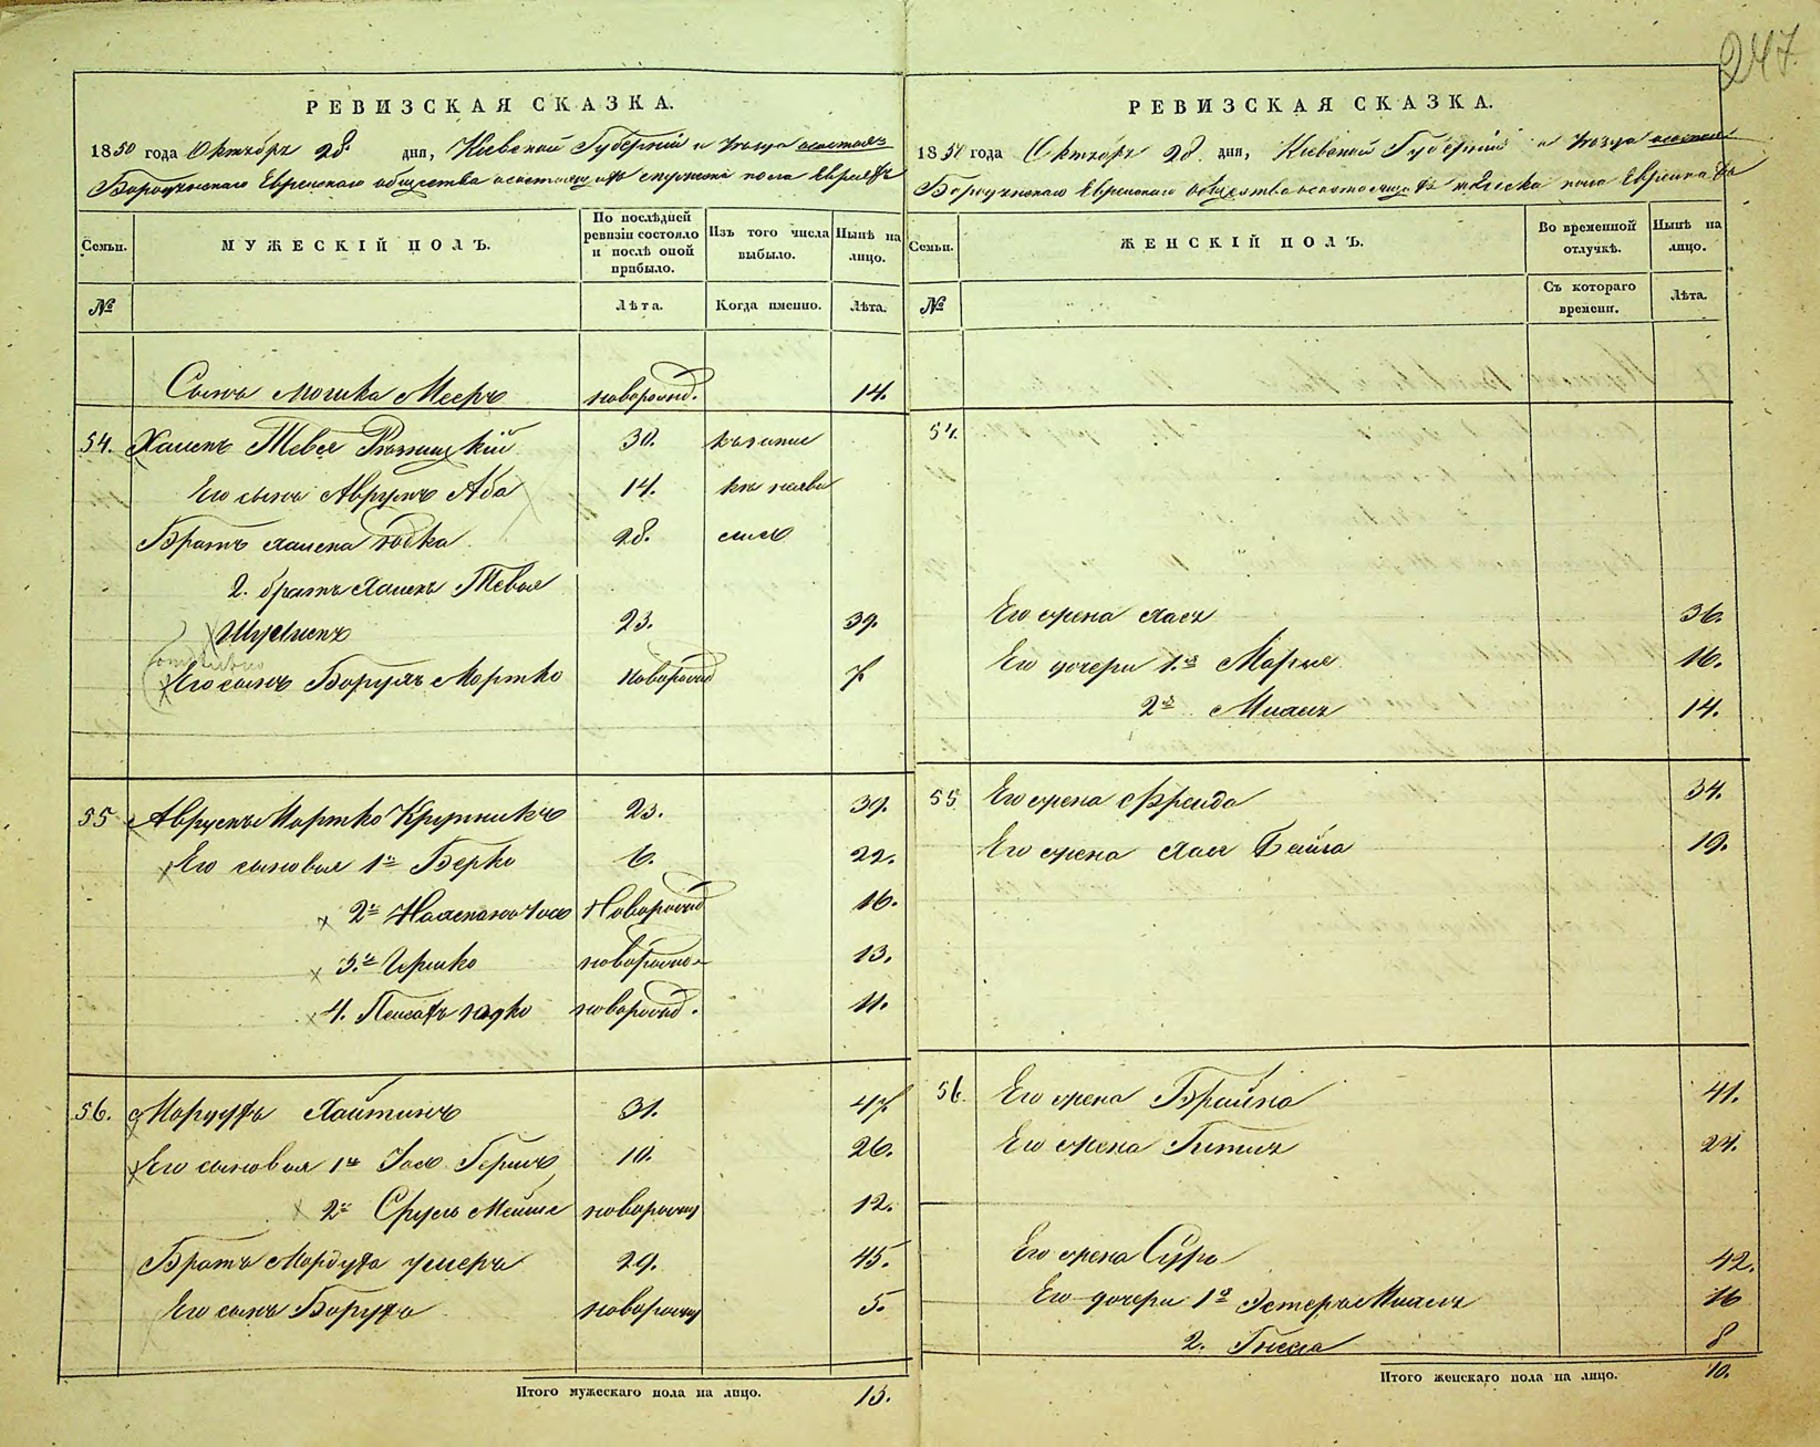 247.
РЕВИЗСКАЯ СКАЗКА.
1850 года Октября 28 дня, Киевской Губернии и уезда
Еврейского общества мужеска пола Евреяхъ
Семьи.
МУЖЕСКІЙ ПОЛЪ.
По послѣдней ревизіи состояло и послѣ оной прибыло.
Изъ того числа выбыло.
Нынѣ на лицо.
№
Лѣта.
Когда именно.
Лѣта.
Сынъ Мошка Мееръ новорожд. 14.
54. Хаимъ Тевел 30.
Его сынъ Аврумъ Аба 14.
Братъ Хаима Юдка 28.
2. братъ Хаима Тевел
Шулимъ 23. 39.
Его сынъ Борухъ Мортко новорожд 7
55 Аврумъ Мортко Крупникъ 23. 39.
Его сыновья 1й Берко 6. 22.
2й Новорожд 16.
3й Гершко новорожд 13.
4. Пейсахъ Юдко новорожд. 11.
56. Мордухъ Хайтинъ 31. 47
Его сыновья 1й Іось Герш 10. 26.
2й Сруль Мейше новорожд 12.
Братъ Мордуха 29. 45.
Его сынъ Борухъ новорожд 5.
Итого мужескаго пола на лицо. 13.
РЕВИЗСКАЯ СКАЗКА.
1850 года Октября 28 дня, Киевской Губернии и уезда
Еврейского общества женска пола
Семьи.
ЖЕНСКІЙ ПОЛЪ.
Во временной отлучкѣ.
Нынѣ на лицо.
№
Съ котораго времени.
Лѣта.
54.
Его жена Хася 36.
Его дочери 1я Марья 16.
2я 14.
55 Его жена Фрейда 34.
Его жена Хая Бейла 19.
56. Его жена Брайна 41.
Его жена Гитля 24.
Его жена Сура 42.
Его дочери 1я Эстеръ 16
2. Гнеся 8
Итого женскаго пола на лицо. 10.